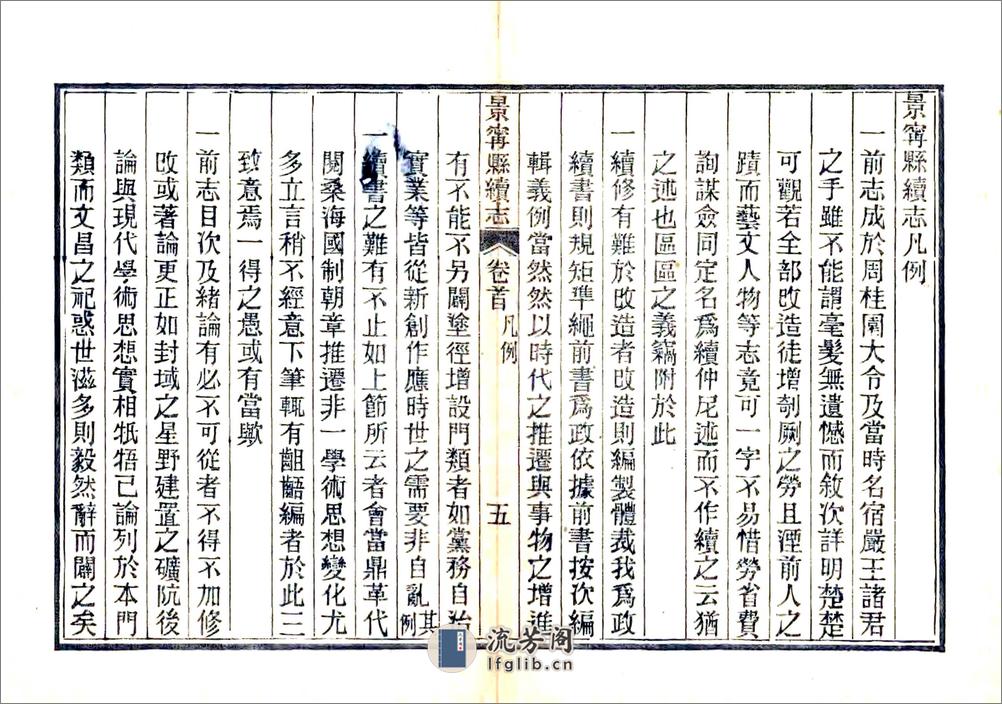 景寧縣續志凡例
一前志成於周桂圃大令及當時名宿嚴王諸君
之手雖不能謂毫髮無遺憾而敘次詳明楚楚
可觀若全部改造徒增剞劂之勞且湮前人之
蹟而藝文人物等志竟可一字不易惜勞省費
詢謀僉同定名爲續仲尼述而不作續之云猶
之述也區區之義竊附於此
一續修有難於改造者改造則編製體裁我爲政
續書則規矩準繩前書爲政依據前書按次編
輯義例當然然以時代之推遷與事物之增進
景寧縣續志 卷首 凡例 五
有不能不另闢塗徑增設門類者如黨務自治
實業等皆從新創作應時世之需要非自亂其例
一續書之難有不止如上節所云者會當鼎革代
閱桑海國制朝章推遷非一學術思想變化尤
多立言稍不經意下筆輒有齟齬編者於此三
致意焉一得之愚或有當歟
一前志目次及緒論有必不可從者不得不加修
改或著論更正如封域之星野建置之礦阬後
論與現代學術思想實相牴牾已論列於本門
類而文昌之祀惑世滋多則毅然辭而闢之矣
流芳阁
lfglib.cn